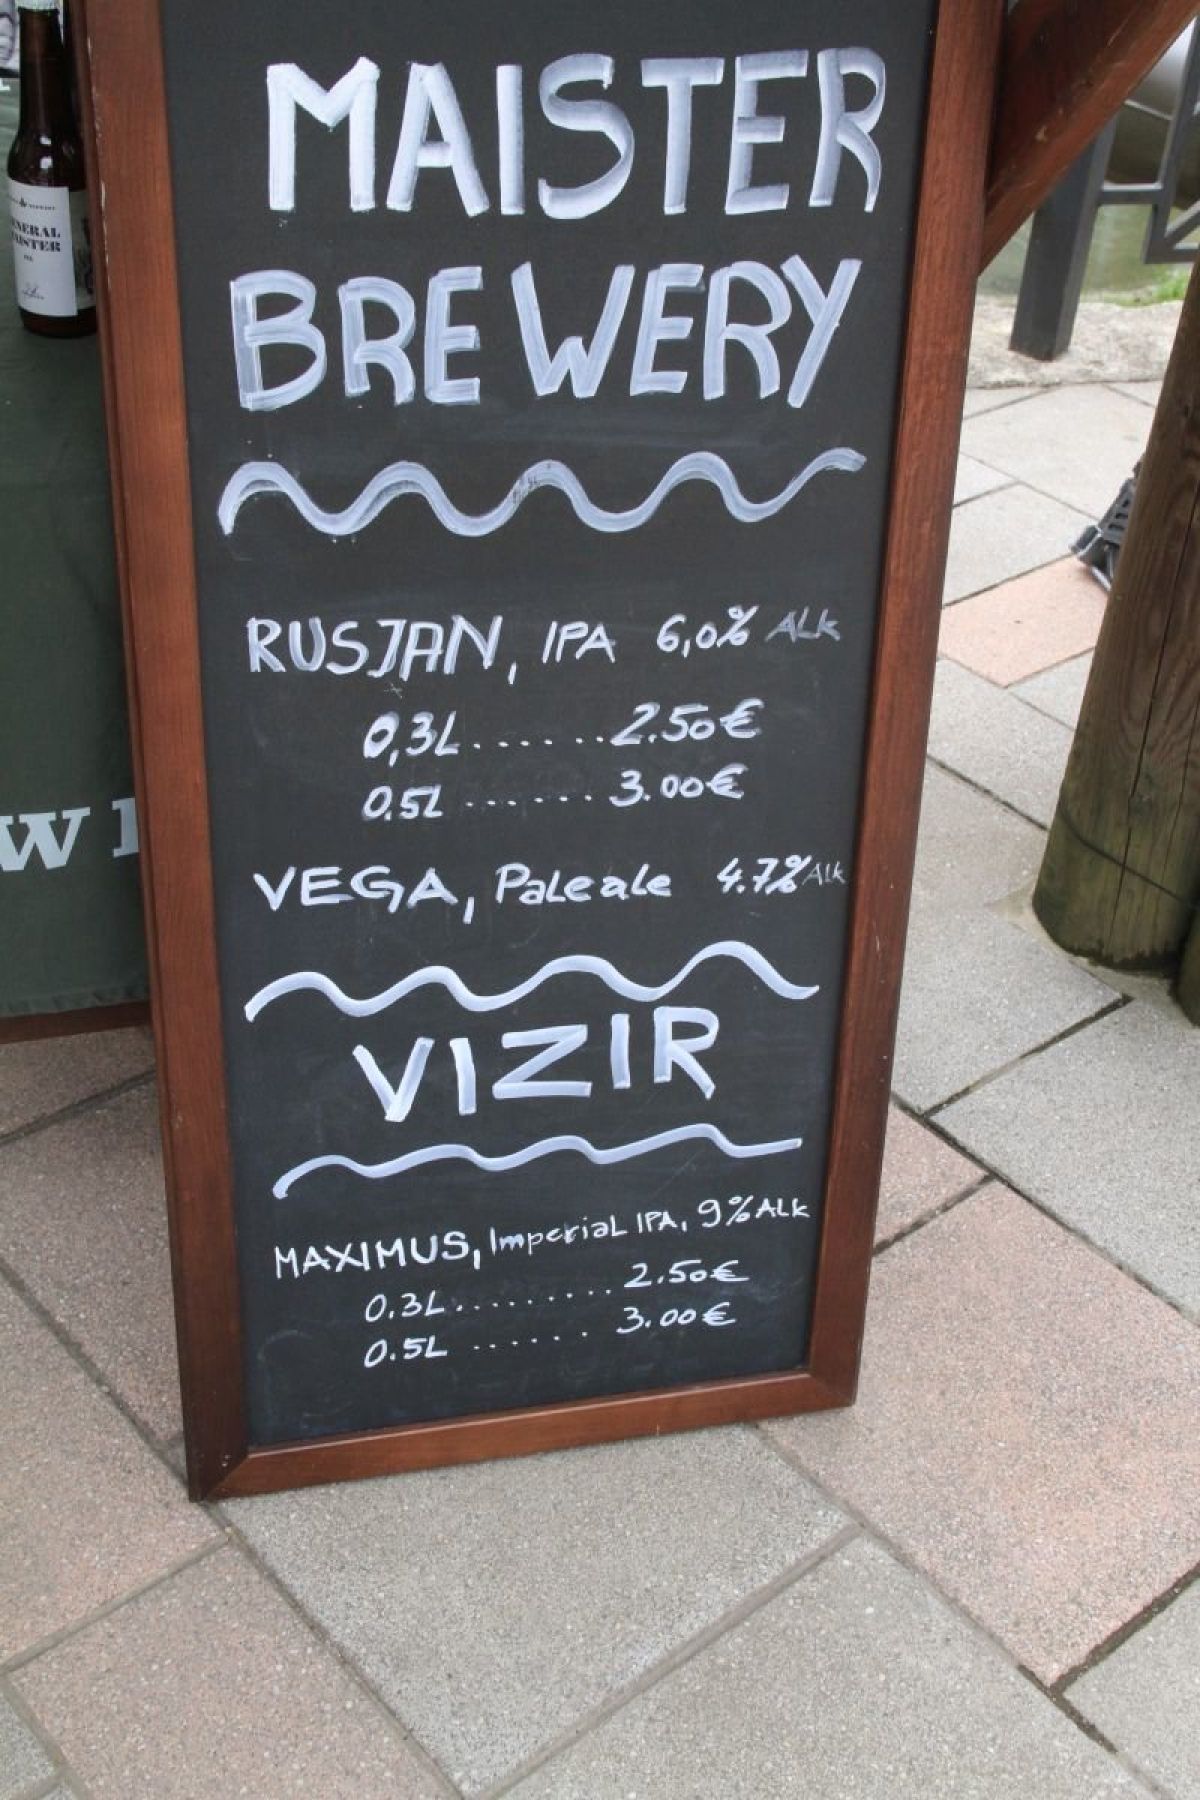 MAISTER
BREWERY
RUSJAN, IPA 6,0% ALK
0,3L......2.50€
0.5L.......3.00€
VEGA, Pale ale 4.7% ALK
VIZIR
MAXIMUS, Imperial IPA, 9% ALK
0.3L..........2.50€
0.5L....... 3.00€
W